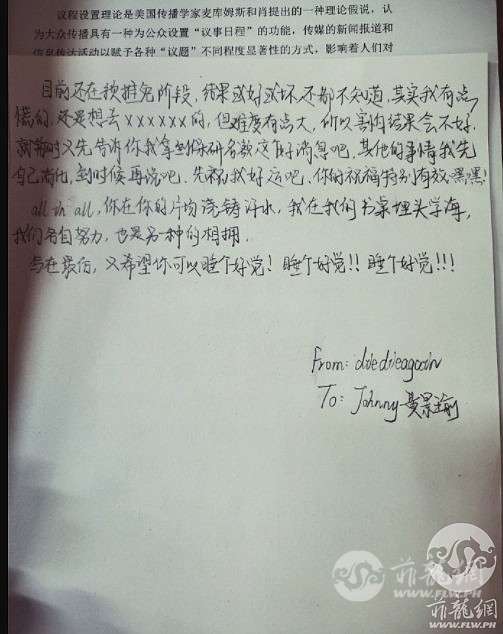 议程设置理论是美国传播学家麦库姆斯和肖提出的一种理论假说，认
为大众传播具有一种为公众设置“议事日程”的功能，传媒的新闻报道和
信息传达活动以赋予各种“议题”不同程度显著性的方式，影响着人们对
目前还在校推免阶段，结果或好或坏还都不知道，其实我有点
慌的，还是想去xxxxxx的，但难度有点大，所以害怕结果会不好。
就暂时又先告诉你我拿到保研名额这个好消息吧，其他的事情我先
自己消化，到时候再说吧，先祝我好运吧，你的祝福特别有效嘿嘿！
all in all，你在你的片场浇铸汗水，我在我的书桌埋头学海，
我们各自努力，也是另一种的相拥。
写在最后，又希望你可以睡个好觉！睡个好觉！！睡个好觉！！！
From: diedieagain
To: Johnny-黄景瑜
菲龍網
WWW.FLW.PH
菲龍網
WWW.FLW.PH